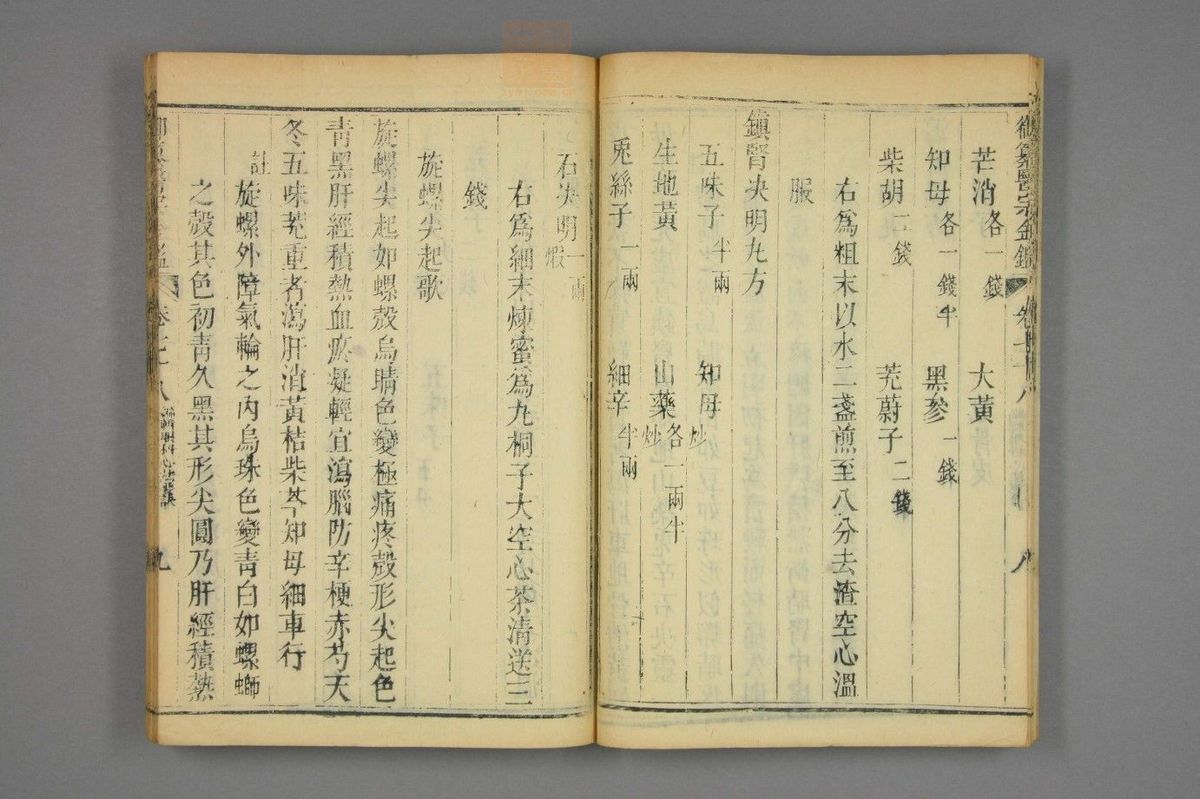 御纂醫宗金鑑 卷七十八 八
芒消各一錢 大黃
知母各一錢半 黑參一錢
柴胡二錢 茺蔚子二錢
右爲粗末以水二盞煎至八分去渣空心溫
服
鎮腎決明丸方
五味子半兩 知母炒
生地黃 山藥炒各一兩半
兎絲子一兩 細辛半兩
石決明煅一兩
右爲細末煉蜜爲丸桐子大空心茶清送三
錢
旋螺尖起歌
旋螺尖起如螺殼烏睛色變極痛疼殼形尖起色
青黑肝經積熱血瘀凝輕宜瀉腦防辛梗赤芍天
冬五味茺重者瀉肝消黃桔柴芩知母細車行
註 旋螺外障氣輪之內烏珠色變青白如螺螄
之殼其色初青久黑其形尖圓乃肝經積熱
九